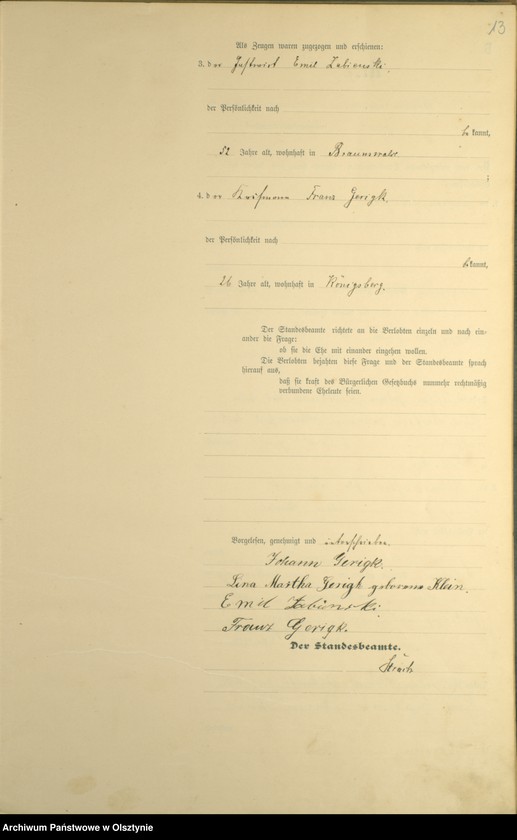 13
Als Zeugen waren zugezogen und erschienen:
3. der Gastwirt Emil Zabinski.
der Persönlichkeit nach
be kannt,
52 Jahre alt, wohnhaft in Braunswalde
4. der Kaufmann Franz Gerigk.
der Persönlichkeit nach
be kannt,
26 Jahre alt, wohnhaft in Königsberg.
Der Standesbeamte richtete an die Verlobten einzeln und nach ein-
ander die Frage:
ob sie die Ehe mit einander eingehen wollen.
Die Verlobten bejahten diese Frage und der Standesbeamte sprach
hierauf aus,
daß sie kraft des Bürgerlichen Gesetzbuchs nunmehr rechtmäßig
verbundene Eheleute seien.
Vorgelesen, genehmigt und unterschrieben.
Johann Gerigk.
Lina Martha Gerigk geborene Klein.
Emil Zabinski
Franz Gerigk.
Der Standesbeamte.
Archiwum Państwowe w Olsztynie